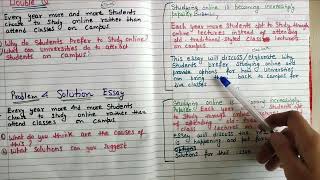 Double Q
Every year more and more Students
choose to Study online rather than
attend classes on Campus
Why do Students prefer to Study online
What can universities do to attract
Students on campus
Problem & Solution Essay
Every year more and more Students
choose to Study online rather than
attend classes on Campus
What do you think are the causes of
this?
What solutions can you suggest
Studying online is becoming increasingly
Each year more Students opt to Study through
online lectures instead of attending
old-traditional-styled class lectures
on campus.
This essay will discuss/elaborate why
Students prefer Studying online and
provide options for how universities
can bring them back to campus for
live classes
Studying online is
Each year more
to Study through online
of attending old
class lectures
essay will discuss the
Solutions for this